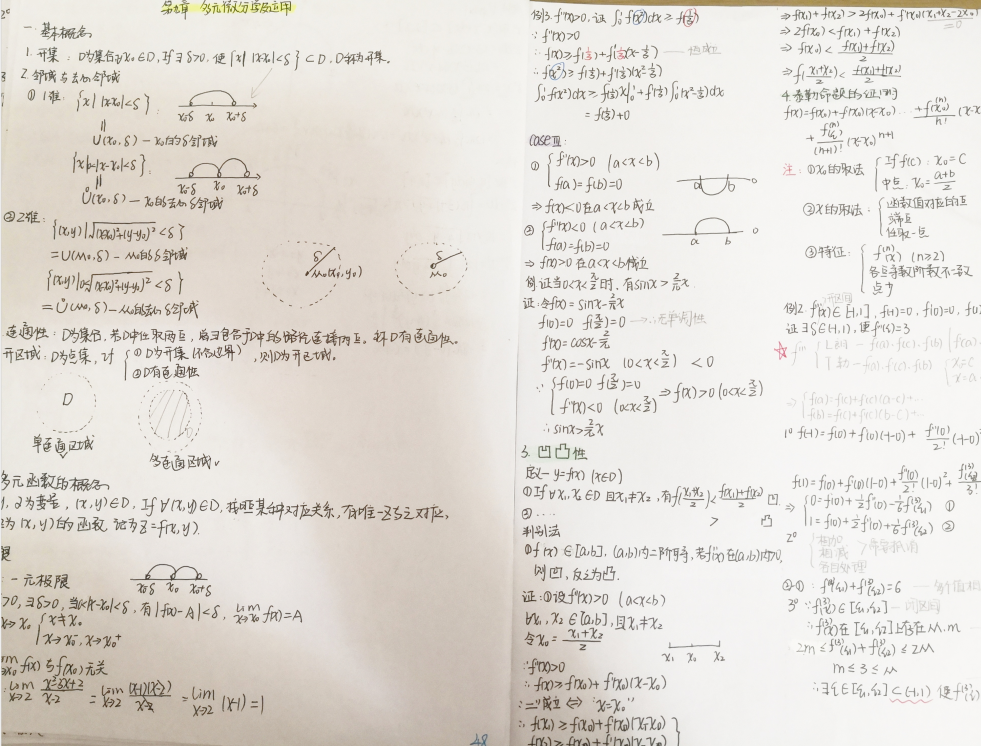 第九章 多元微分学及应用
一. 基本概念
1. 开集: D为集合, ∀x₀∈D, If ∃δ>0, 使{x| |x-x₀|<δ}⊂D, D称为开集.
2. 邻域与去心邻域
① 1维: {x| |x-x₀|<δ}:
x₀-δ x₀ x₀+δ
U(x₀,δ) — x₀的δ邻域
{x|0<|x-x₀|<δ}:
x₀-δ x₀ x₀+δ
Ů(x₀,δ) — x₀的去心δ邻域
② 2维:
{(x,y)|√(x-x₀)²+(y-y₀)² <δ}
= U(M₀,δ) — M₀的δ邻域
{(x,y)|0<√(x-x₀)²+(y-y₀)² <δ}
= Ů(M₀,δ) — M₀的去心δ邻域
δ
M₀(x₀,y₀)
δ
M₀
连通性: D为集合, 若D中任取两点, 有D中的路径连接两点. 称D有连通性.
开区域: D为点集, If { ①D为开集(不含边界) ②D有连通性 , 则D为开区域.
D
单连通区域
多连通区域
多元函数的概念
为变量, (x,y)∈D, If ∀(x,y)∈D, 按照某种对应关系, 有唯一Z与之对应,
为(x,y)的函数, 记为Z=f(x,y).
限
一元极限
x₀-δ x₀ x₀+δ
>0, ∃δ>0, 当0<|x-x₀|<δ, 有|f(x)-A|<δ, lim x→x₀ f(x)=A
x→x₀ { x≠x₀
x→x₀⁻, x→x₀⁺
f(x)与f(x₀)无关
lim x→2 (x²-3x+2)/(x-2) = lim x→2 (x-1)(x-2)/(x-2) = lim x→2 (x-1)=1
48
例3. f''(x)>0, 证 ∫₀¹f(x²)dx ≥ f(1/3)
∵ f''(x)>0
∴ f(x)≥f(1/3)+f'(1/3)(x-1/3)
∴ f(x²)≥f(1/3)+f'(1/3)(x²-1/3)
∫₀¹f(x²)dx ≥ f(1/3)x|₀¹+f'(1/3)∫₀¹(x²-1/3)dx
= f(1/3)+0
case Ⅲ:
① { f''(x)>0 (a<x<b)
f(a)=f(b)=0
a b 0
⇒ f(x)<0 在 a<x<b 成立
② { f''(x)<0 (a<x<b)
f(a)=f(b)=0
a b 0
⇒ f(x)>0 在a<x<b成立
例. 证当0<x<π/2时, 有sinx>2/π x
证: 令f(x)=sinx-2/π x
f(0)=0 f(π/2)=0
f'(x)=cosx-2/π
f''(x)=-sinx (0<x<π/2) <0
∵ { f(0)=0 f(π/2)=0
f''(x)<0 (0<x<π/2) ⇒ f(x)>0 (0<x<π/2)
∴ sinx>2/π x
3. 凹凸性
定义 — y=f(x) (x∈D)
① If ∀x₁,x₂∈D 且x₁≠x₂, 有f((x₁+x₂)/2)<(f(x₁)+f(x₂))/2 凹
② .... > 凸
判别法
① f(x)∈[a,b], (a,b)内二阶可导, 若f''(x)在(a,b)内>0,
则凹, 反之为凸.
证: ①设f''(x)>0 (a<x<b)
∀x₁,x₂∈[a,b], 且x₁≠x₂
令x₀=(x₁+x₂)/2
x₁ x₀ x₂
∵ f''(x)>0
∴ f(x)≥f(x₀)+f'(x₀)(x-x₀)
∵ "="成立 ⇔ "x=x₀"
∴ f(x₁)>f(x₀)+f'(x₀)(x₁-x₀)
f(x₂)>f(x₀)+f'(x₀)(x₂-x₀)
⇒ f(x₁)+f(x₂)>2f(x₀)+f'(x₀)(x₁+x₂-2x₀)
=0
⇒ 2f(x₀)<f(x₁)+f(x₂)
⇒ f(x₀)<(f(x₁)+f(x₂))/2
⇒ f((x₁+x₂)/2)<(f(x₁)+f(x₂))/2
4. 泰勒命题的证明
f(x)=f(x₀)+f'(x₀)(x-x₀)...+f⁽ⁿ⁾(x₀)/n! (x-x
+ (x-x₀)ⁿ⁺¹
注: ①x₀的取法 { If f'(c): x₀=c
中点: x₀=(a+b)/2
②x的取法: { 函数值对应的点
端点
任取一点
③特征: { f⁽ⁿ⁾(x) (n≥2)
开区间
例2. f(-1)=0, f'(0)=0, f(
证∃ξ∈(-1,1), 使f'''(ξ)=3
☆
1° f(-1)=f(0)+f'(0)(-1-0)+f''(0)/2! (-1-0)²
f(1)=f(0)+f'(0)(1-0)+f''(0)/2! (1-0)²+
⇒ { 0=f(0)+1/2 f''(0)-1/6 f⁽³⁾(ξ₁) ①
1=f(0)+1/2 f''(0)+1/6 f⁽³⁾(ξ₂) ②
2° { 相加
相减
②-①: f⁽³⁾(ξ₁)+f⁽³⁾(ξ₂)=6
3° ∵ f⁽³⁾(x)∈[ξ₁,ξ₂] — 闭区间
∴ f⁽³⁾(x)在[ξ₁,ξ₂]上存在M,m
2m≤f⁽³⁾(ξ₁)+f⁽³⁾(ξ₂)≤2M
m≤3≤M
∴ ∃ξ∈[ξ₁,ξ₂]⊂(-1,1) 使f⁽³⁾(ξ)